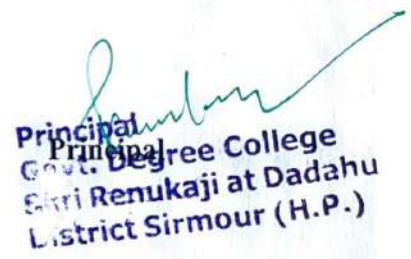 Principal
Principal
Govt. Degree College
Shri Renukaji at Dadahu
District Sirmour (H.P.)